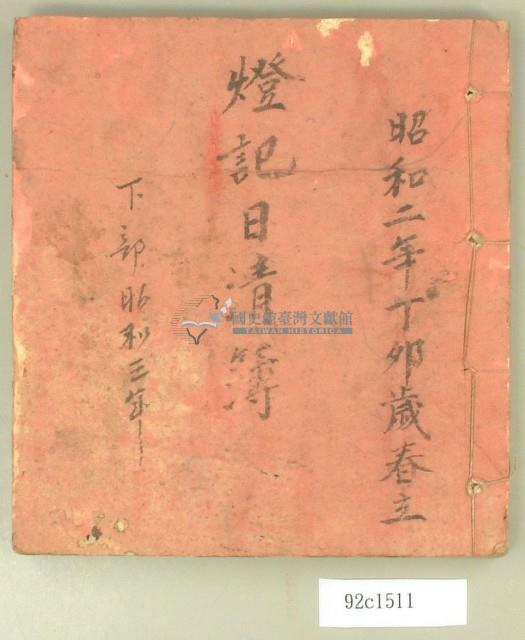 昭和二年丁卯歲春立
燈記日清簿
下部昭和三年
國史館臺灣文獻館
TAIWAN HISTORICA
92cl511